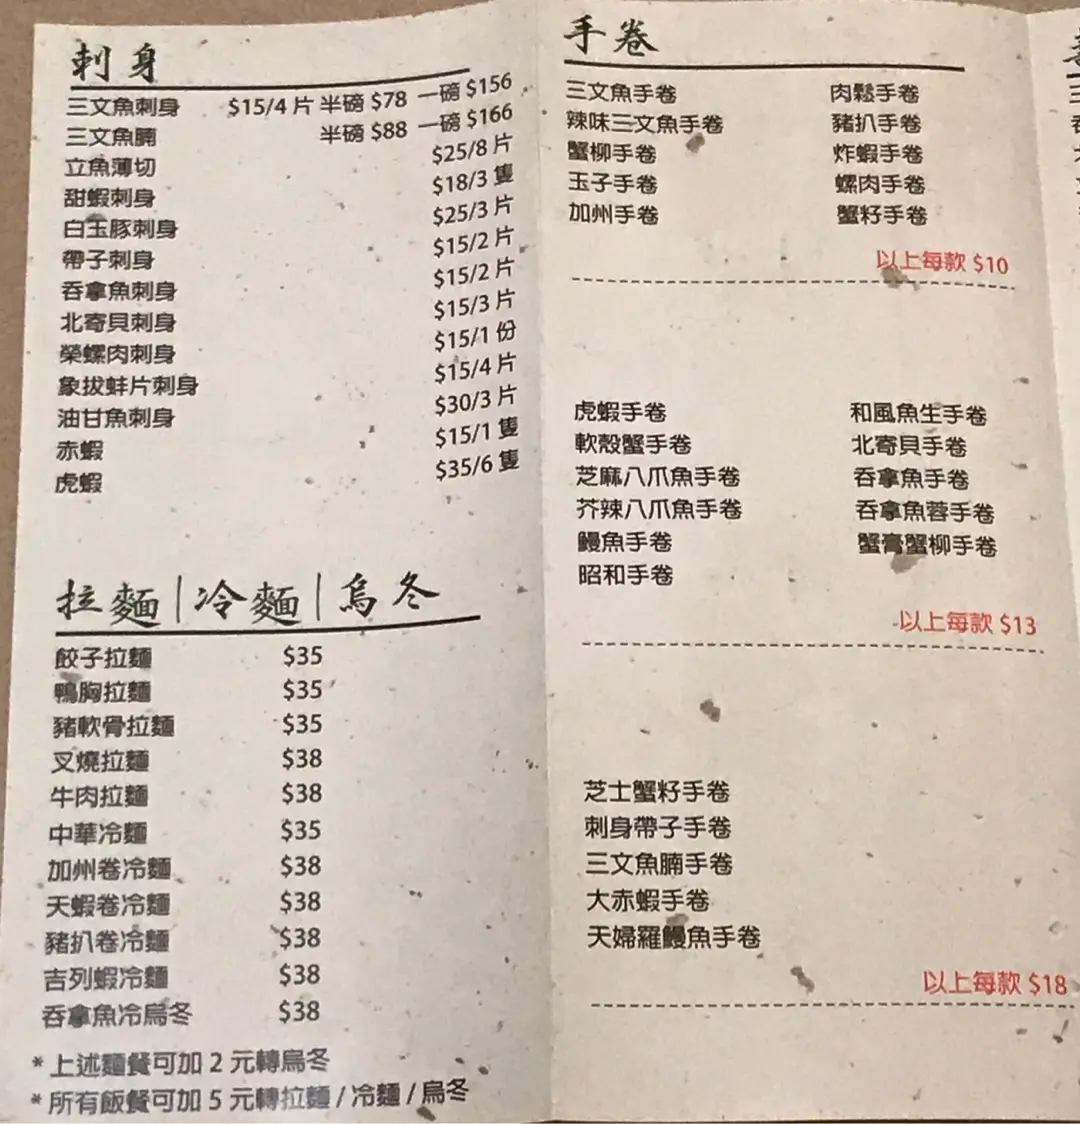 刺身
三文魚刺身 $15/4 片 半磅 $78 一磅 $156
三文魚腩 半磅 $88 一磅 $166
立魚薄切 $25/8 片
甜蝦刺身 $18/3 隻
白玉豚刺身 $25/3 片
帶子刺身 $15/2 片
吞拿魚刺身 $15/2 片
北寄貝刺身 $15/3 片
榮螺肉刺身 $15/1 份
象拔蚌片刺身 $15/4 片
油甘魚刺身 $30/3 片
赤蝦 $15/1 隻
虎蝦 $35/6 隻
拉麵|冷麵|烏冬
餃子拉麵 $35
鴨胸拉麵 $35
豬軟骨拉麵 $35
叉燒拉麵 $38
牛肉拉麵 $38
中華冷麵 $35
加州卷冷麵 $38
天蝦卷冷麵 $38
豬扒卷冷麵 $38
吉列蝦冷麵 $38
吞拿魚冷烏冬 $38
* 上述麵餐可加 2 元轉烏冬
* 所有飯餐可加 5 元轉拉麵 / 冷麵 / 烏冬
手卷
三文魚手卷 肉鬆手卷
辣味三文魚手卷 豬扒手卷
蟹柳手卷 炸蝦手卷
玉子手卷 螺肉手卷
加州手卷 蟹籽手卷
以上每款 $10
虎蝦手卷 和風魚生手卷
軟殼蟹手卷 北寄貝手卷
芝麻八爪魚手卷 吞拿魚手卷
芥辣八爪魚手卷 吞拿魚蓉手卷
鰻魚手卷 蟹膏蟹柳手卷
昭和手卷
以上每款 $13
芝士蟹籽手卷
刺身帶子手卷
三文魚腩手卷
大赤蝦手卷
天婦羅鰻魚手卷
以上每款 $18